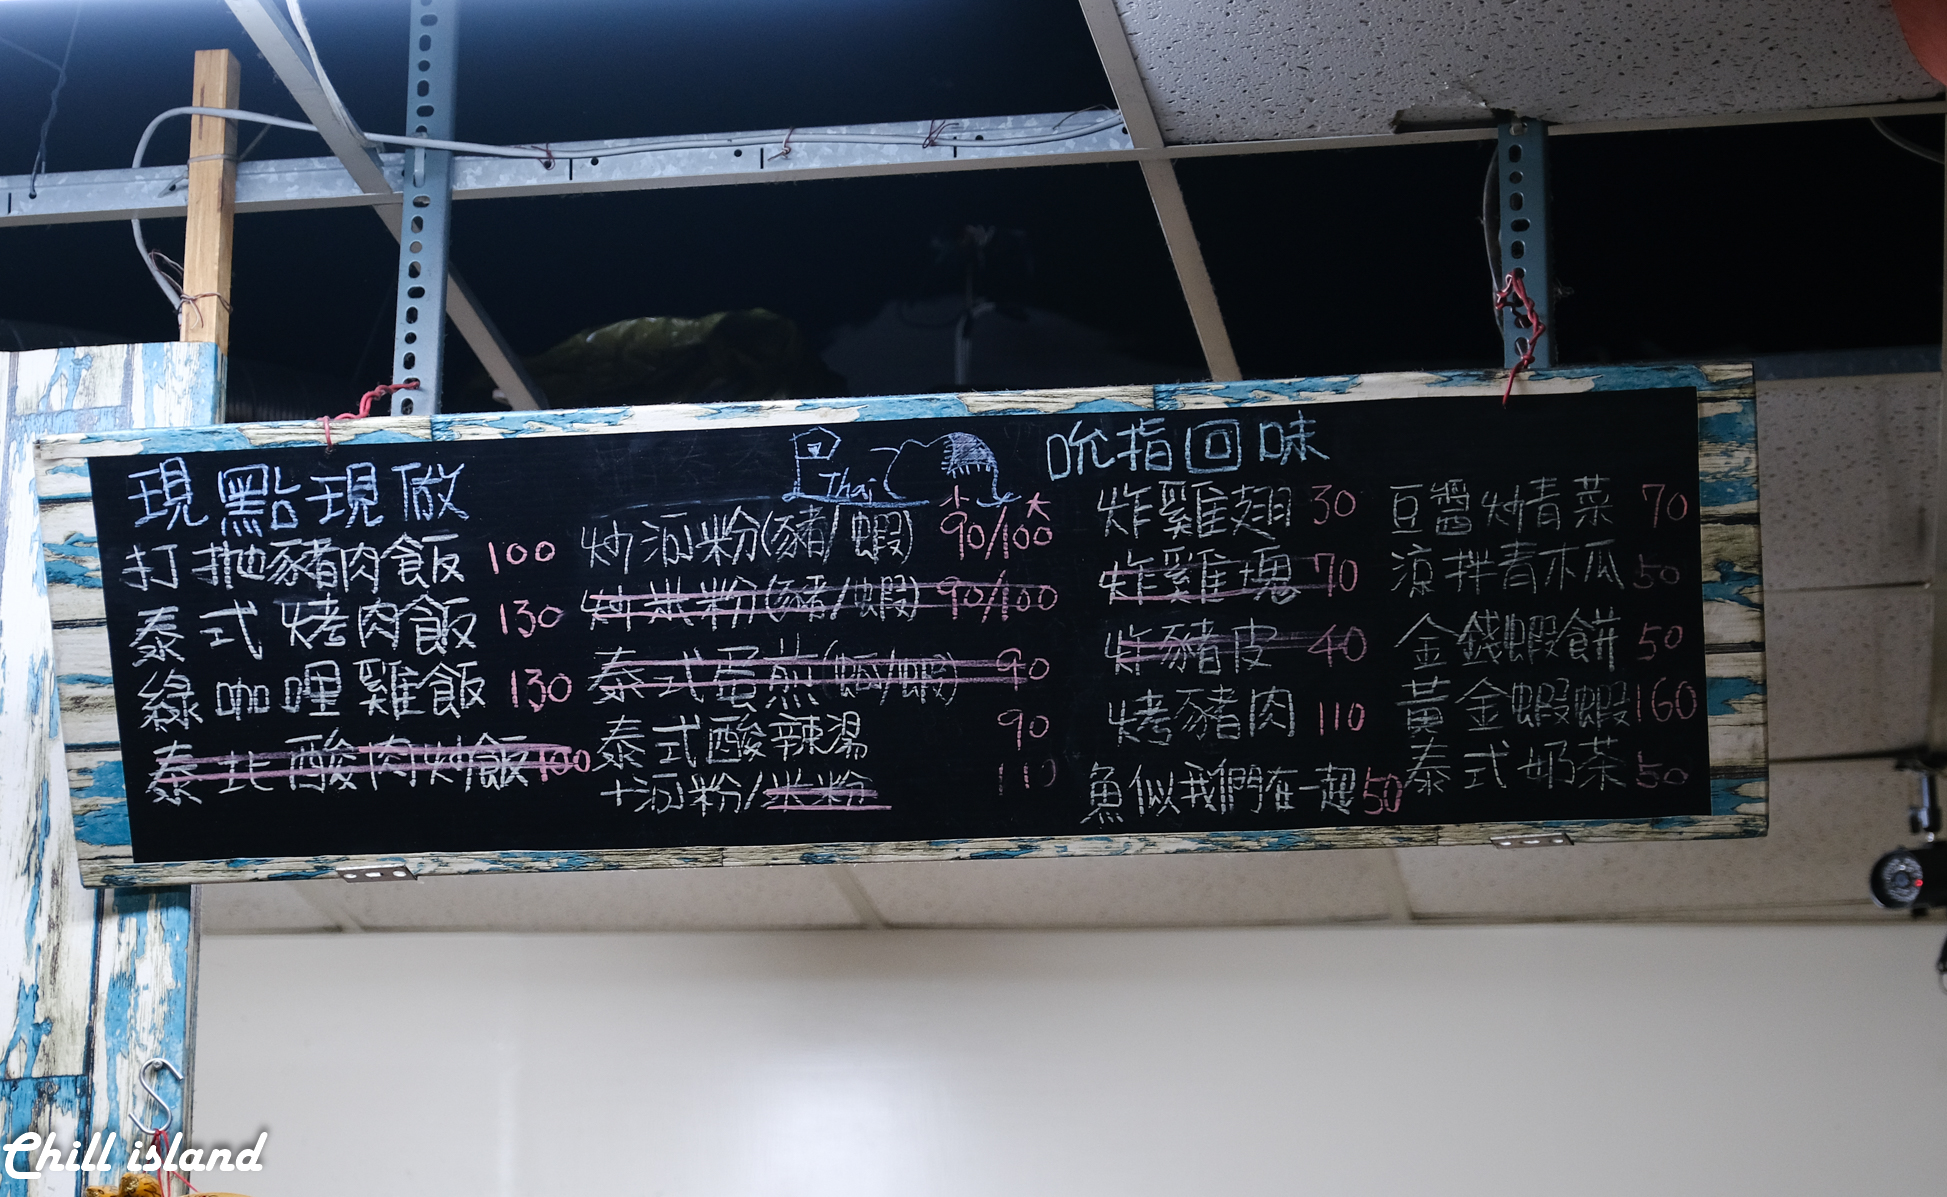 現點現做
打拋豬肉飯 100
泰式烤肉飯 130
綠咖哩雞飯 130
泰北酸肉炒飯 100
Thai
小 大
炒河粉(豬/蝦) 90/100
炒米粉(豬/蝦) 90/100
泰式蛋煎(蚵/蝦) 90
泰式酸辣湯 90
+河粉/米粉 110
吮指回味
炸雞翅 30
炸雞塊 70
炸豬皮 40
烤豬肉 110
魚似我們在一起 50
豆醬炒青菜 70
涼拌青木瓜 50
金錢蝦餅 50
黃金蝦蝦 160
泰式奶茶 50
Chill island